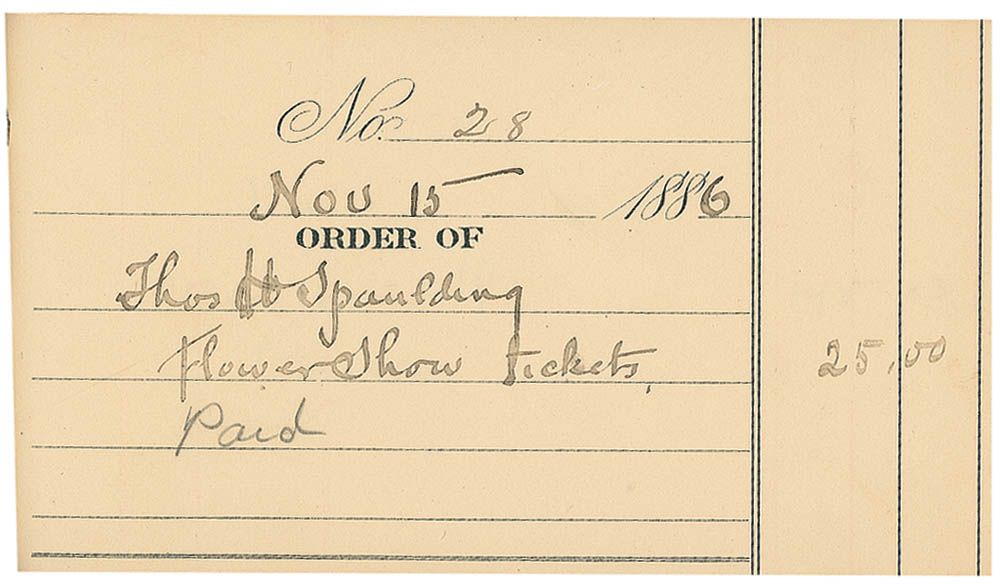 No. 28
Nov 15 1886
ORDER OF
Thos H Spaulding
Flower Show tickets, 25.00
Paid